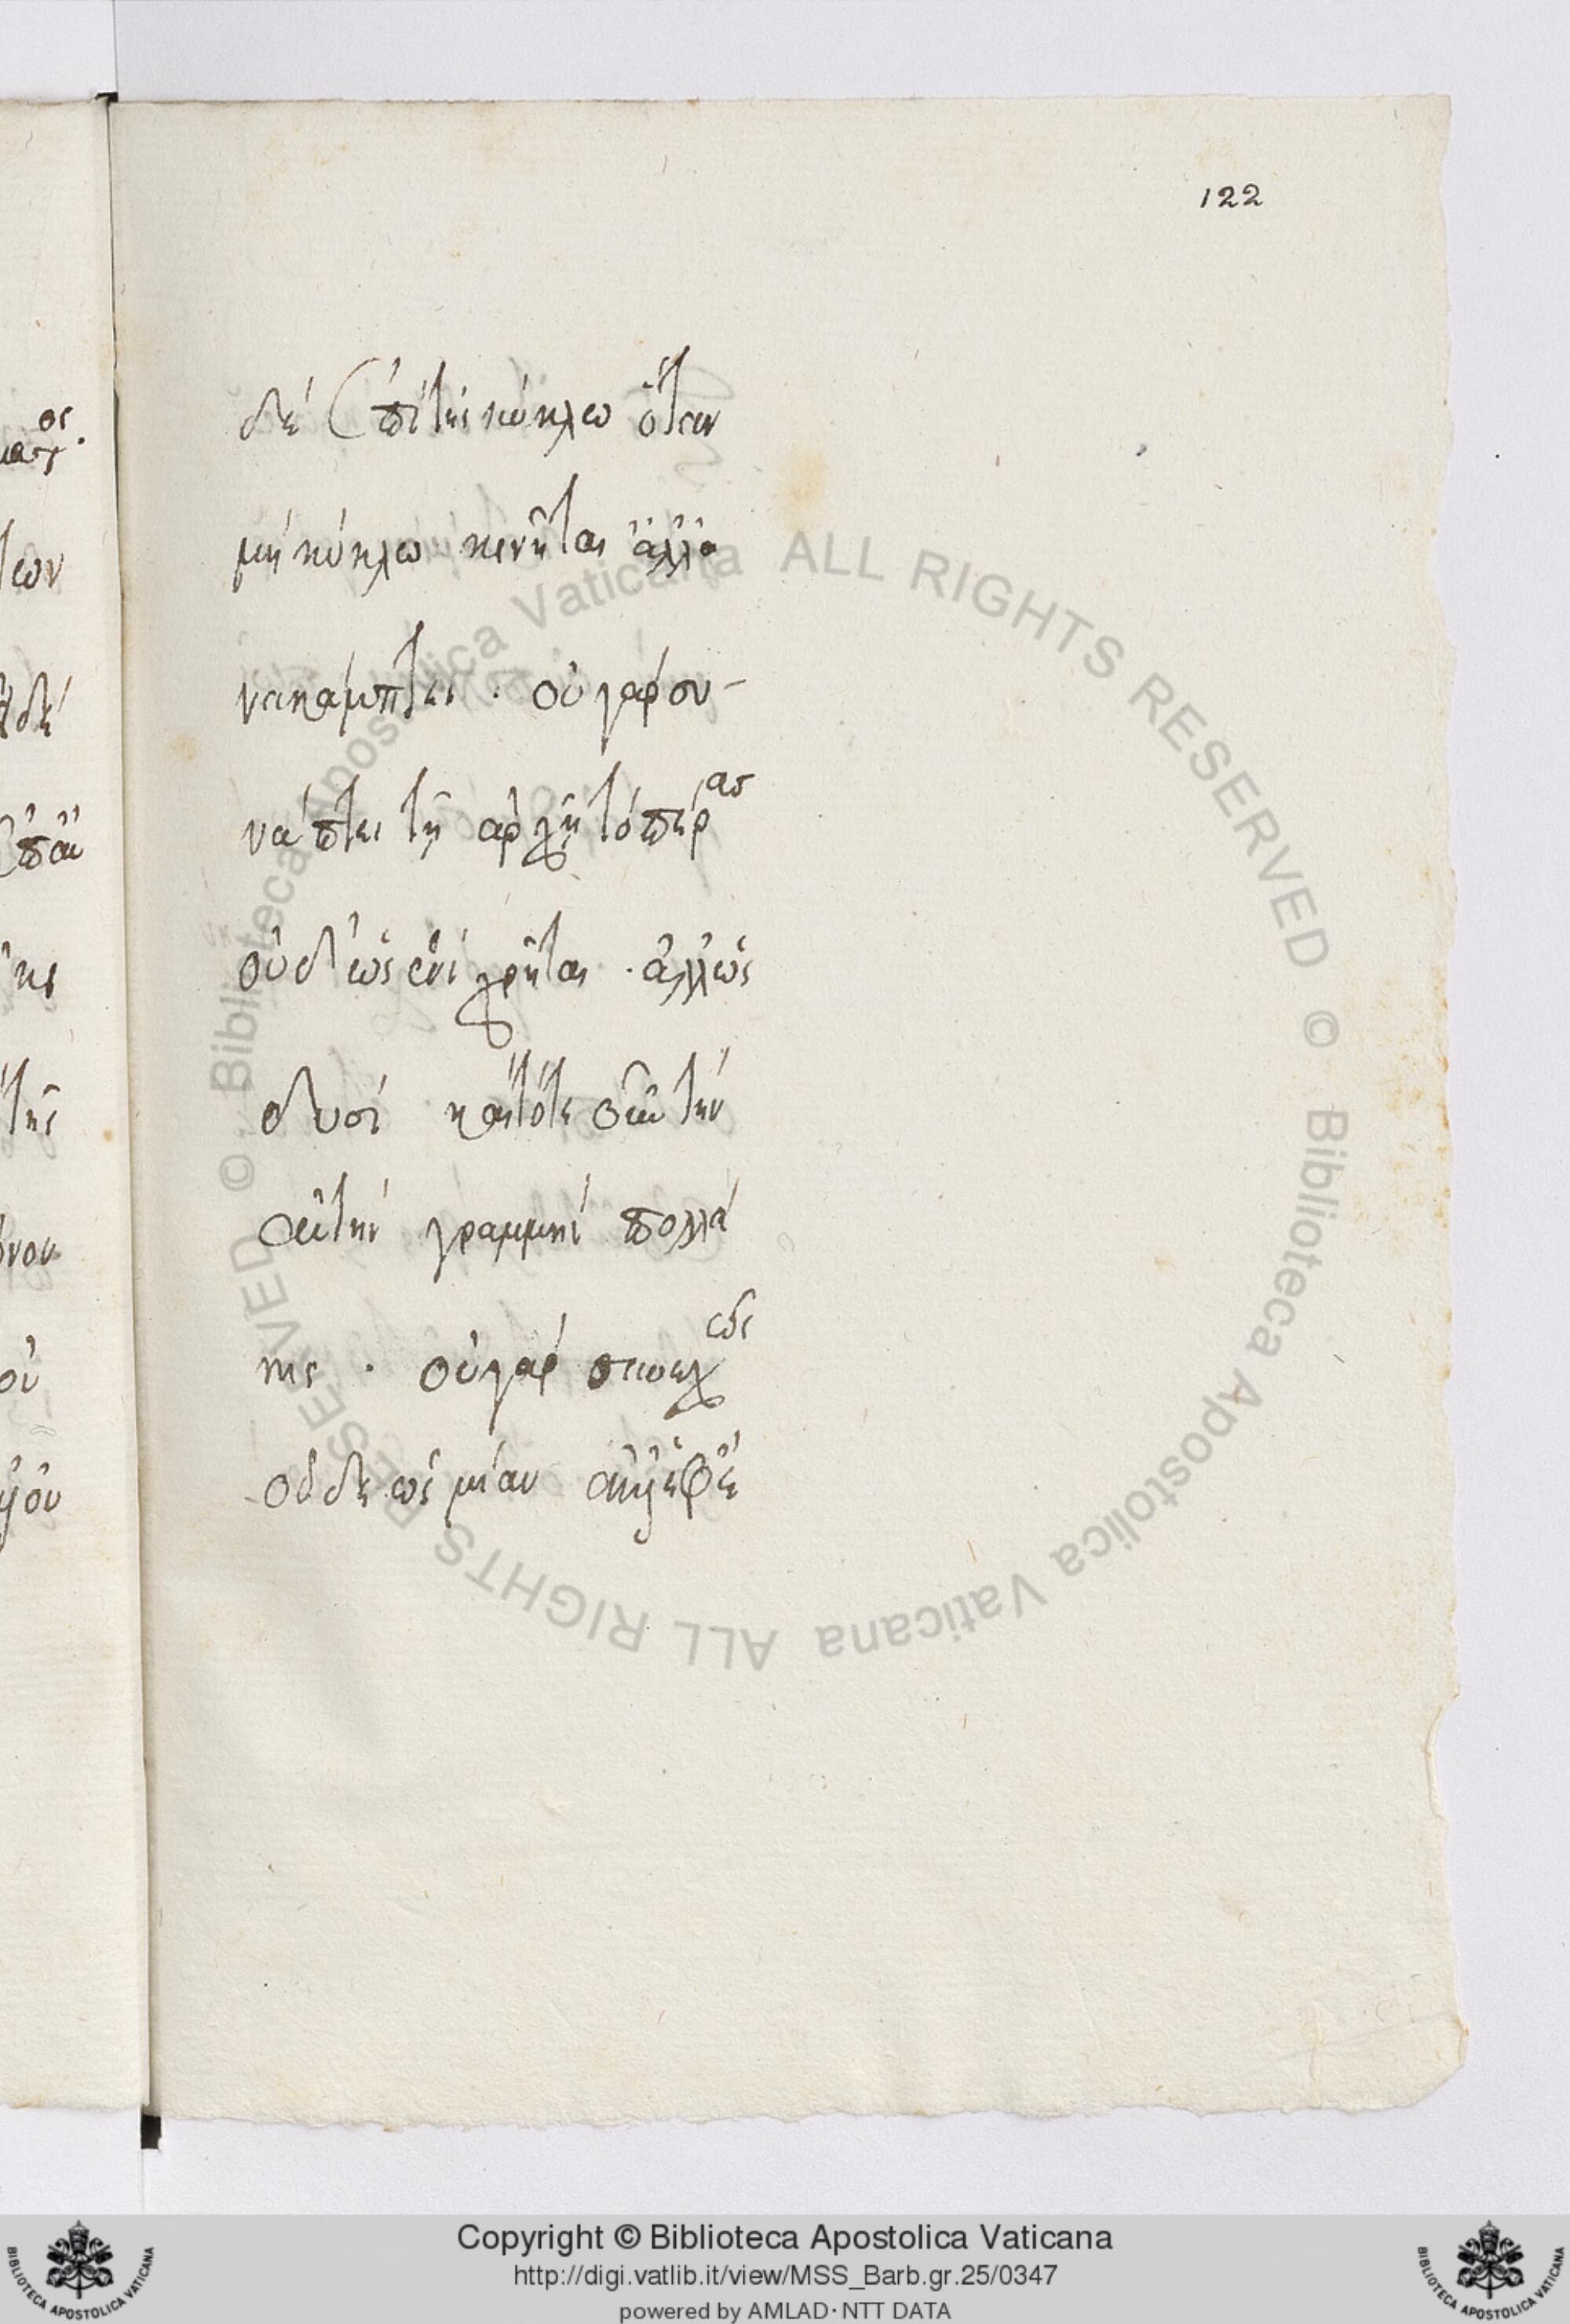 122
δὲ ἐπὶ τῆς κύκλω ὅταν
μὴ κύκλω κινῆται ἀλλ' ἀ
νακάμπτει · οὐ γὰρ συ-
νάπτει τῇ ἀρχῇ τὸ πέρας
οὐδ' ὡς ἑνὶ χρῆται · ἀλλ' ὡς
δυσί καὶ τότε ὅταν τὴν
αὐτὴν γραμμὴν πολλά
κις · οὐ γὰρ συνεχῶς
οὐδὲ ὡς μίαν
ALL RIGHTS RESERVED © Biblioteca Apostolica Vaticana ALL RIGHTS RESERVED © Biblioteca Apostolica Vaticana
Copyright © Biblioteca Apostolica Vaticana
http://digi.vatlib.it/view/MSS_Barb.gr.25/0347
powered by AMLAD · NTT DATA
BIBLIOTECA APOSTOLICA VATICANA
BIBLIOTECA APOSTOLICA VATICANA